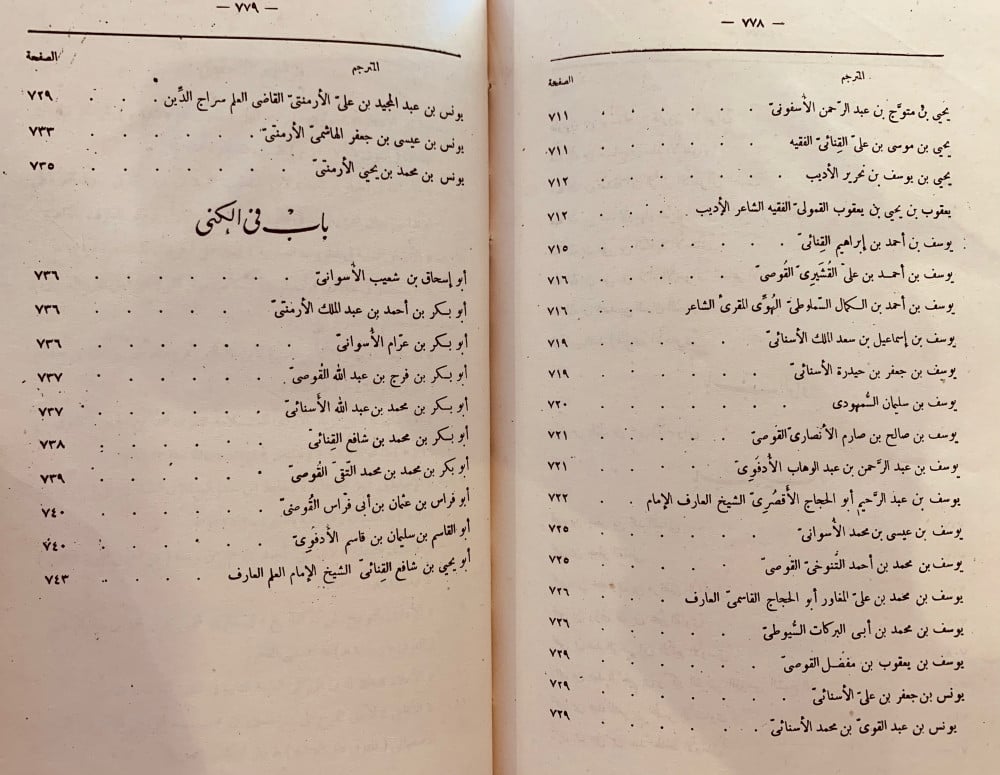 — ٧٧٨ —
المترجم الصفحة
يحيى بن متوّج بن عبد الرّحمن الأسفونىّ . . . . . ٧١١
يحيى بن موسى بن علىّ القِنائىّ الفقيه . . . . . ٧١١
يحيى بن يوسف بن تحرير الأديب . . . . . ٧١٢
يعقوب بن يحيى بن يعقوب القمولىّ الفقيه الشاعر الأديب . . . ٧١٢
يوسف بن أحمد بن إبراهيم القِنائىّ . . . . . ٧١٥
يوسف بن أحمد بن علىّ القُشَيرىّ القُوصىّ . . . . . ٧١٦
يوسف بن أحمد بن الكمال السّملوطىّ الهُوِّى المقرئ الشاعر . . . ٧١٦
يوسف بن إسماعيل بن سعد الملك الأسنائىّ . . . . . ٧١٩
يوسف بن جعفر بن حيدرة الأسنائىّ . . . . . ٧١٩
يوسف بن سليمان السُّمهودى . . . . . . ٧٢٠
يوسف بن صالح بن صارم الأنصارىّ القوصىّ . . . . . ٧٢١
يوسف بن عبد الرّحمن بن عبد الوهاب الأدفوىّ . . . . . ٧٢١
يوسف بن عبد الرَّحيم أبو الحجاج الأقصُرىّ الشيخ العارف الإمام . . ٧٢٢
يوسف بن عيسى بن محمد الأسوانىّ . . . . . ٧٢٥
يوسف بن محمد بن أحمد التَّنوخىّ القوصىّ . . . . . ٧٢٥
يوسف بن محمد بن علىّ المغاور أبو الحجاج القاسمىّ العارف . . . ٧٢٦
يوسف بن محمد بن أبى البركات السُّيوطىّ . . . . . ٧٢٦
يوسف بن يعقوب بن مفضل القوصىّ . . . . . ٧٢٩
يونس بن جعفر بن علىّ الأسنائىّ . . . . . ٧٢٩
يونس بن عبد القوىّ بن محمد الأسنائىّ . . . . . ٧٢٩
— ٧٧٩ —
المترجم الصفحة
يونس بن عبد المجيد بن علىّ الأرمنتىّ القاضى العلم سراج الدِّين . . . ٧٢٩
يونس بن عيسى بن جعفر الهاشمىّ الأرمنتىّ . . . . . ٧٣٣
يونس بن محمد بن يحيى الأرمنتىّ . . . . . . ٧٣٥
باب فى الكنى
أبو إسحاق بن شعيب الأسوانىّ . . . . . . ٧٣٦
أبو بكر بن أحمد بن عبد الملك الأرمنتىّ . . . . . ٧٣٦
أبو بكر بن عرّام الأسوانىّ . . . . . . ٧٣٦
أبو بكر بن فرج بن عبد الله القوصىّ . . . . . ٧٣٧
أبو بكر بن محمد بن عبد الله الأسنائىّ . . . . . ٧٣٧
أبو بكر بن محمد بن شافع القِنائىّ . . . . . ٧٣٨
أبو بكر بن محمد بن محمد التّقى القُوصىّ . . . . . ٧٣٩
أبو فراس بن عثمان بن أبى فرّاس القُوصىّ . . . . . ٧٤٠
أبو القاسم بن سليمان بن قاسم الأدفوىّ . . . . . ٧٤٠
أبو يحيى بن شافع القِنائىّ الشيخ الإمام العلم العارف . . . . ٧٤٣